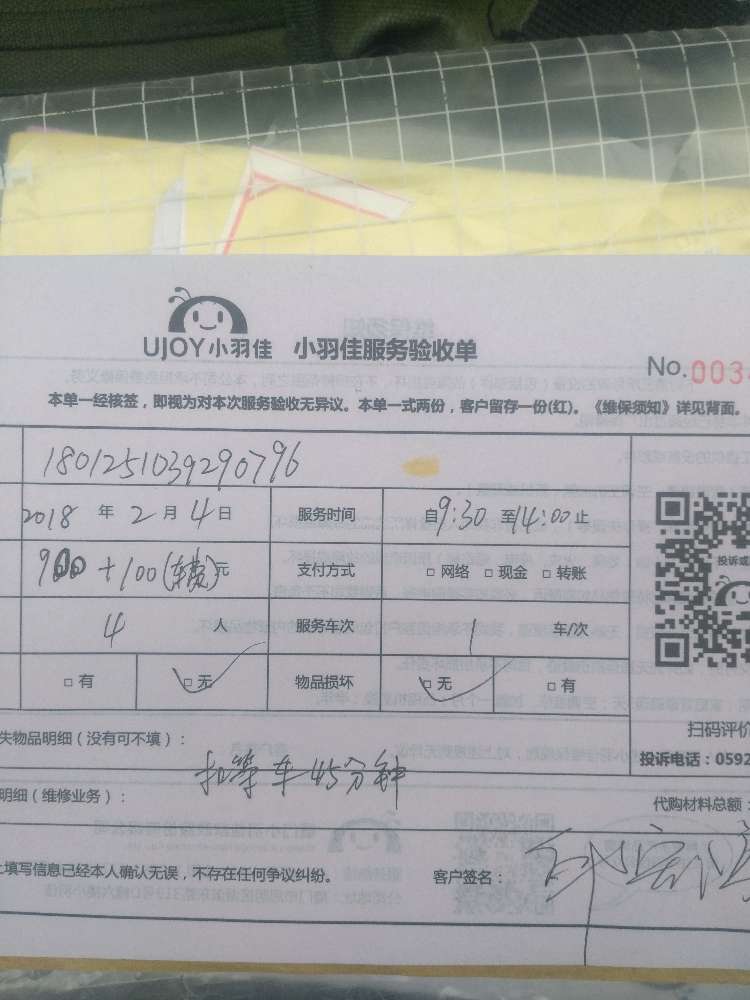 UJOY小羽佳 小羽佳服务验收单
No.003
本单一经核签，即视为对本次服务验收无异议。本单一式两份，客户留存一份(红)。《维保须知》详见背面。
1801251039290796
2018 年 2 月 4 日 服务时间 自9:30 至14:00止
900+100(车费)元 支付方式 □ 网络 □ 现金 □ 转账
投诉或
4 服务车次 1 车/次
□ 有 □ 无 物品损坏 □ 无 □ 有
失物品明细（没有可不填）：
扫码评价
投诉电话：0592
扣等车45分钟
明细（维修业务）：
代购材料总额：
填写信息已经本人确认无误，不存在任何争议纠纷。 客户签名：